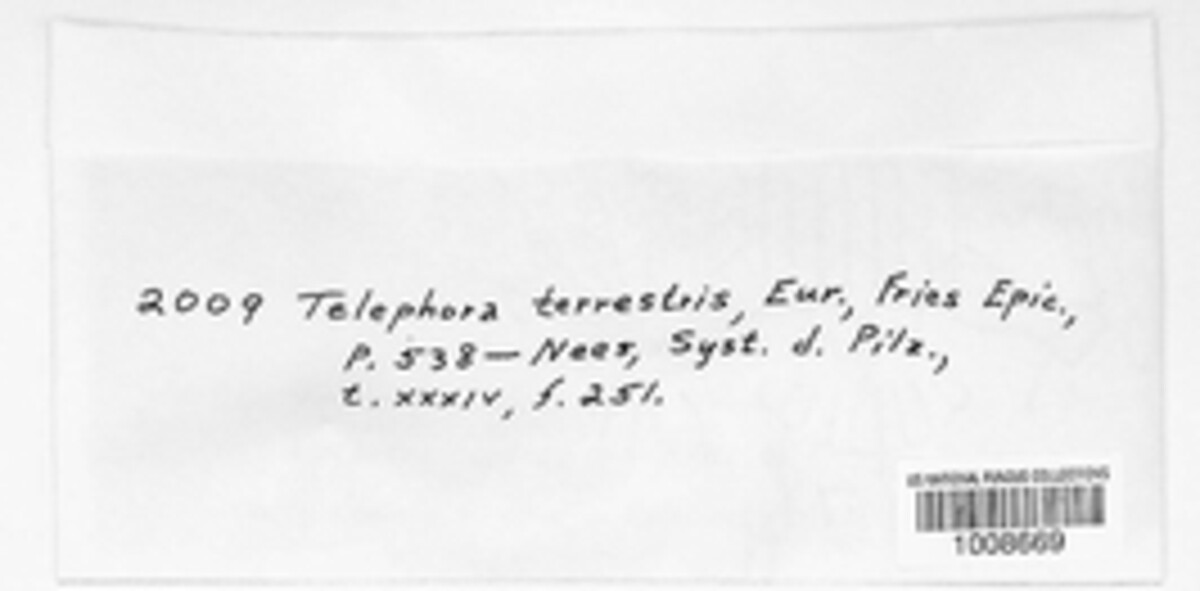 2009 Telephora terrestris, Eur., Fries Epic.,
P. 538 — Nees, Syst. d. Pilz.,
t. xxxiv, f. 251.
US NATIONAL FUNGUS COLLECTIONS
1008669